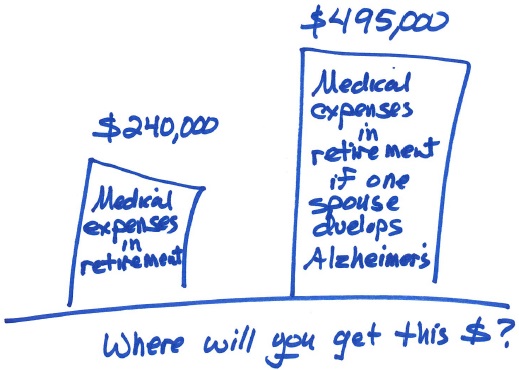 $240,000
Medical
expenses
in
retirement
$495,000
Medical
expenses
in
retirement
if one
spouse
duelops
Alzheimer's
Where will you get this $?